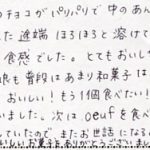 のチョコがパリパリで中のあん
た途端ほろほろと溶けて
食感でした。とてもおいし
娘も普段はあまり和菓子は
おいしい!もう1個食べたい!
いました。次はoeufを食べ
していたので、またお世話になる
おいしいお菓子をありがとうございまし